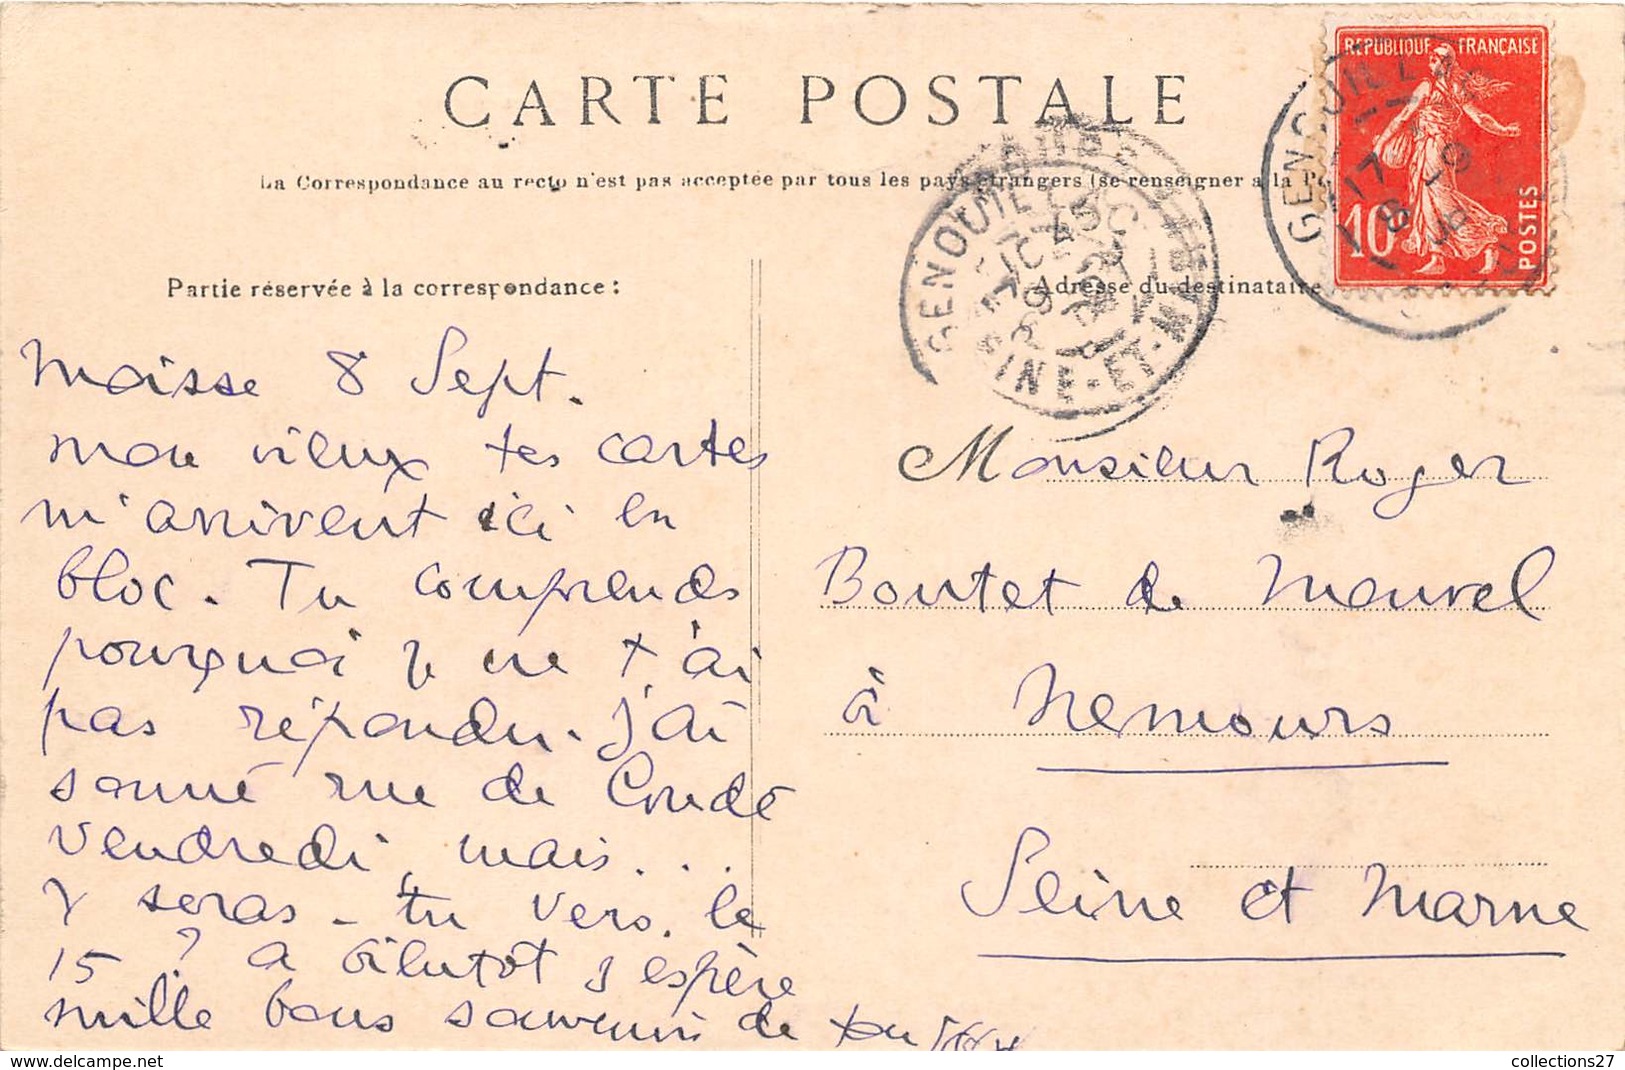 CARTE POSTALE
La Correspondance au recto n'est pas acceptée par tous les pays étrangers (se renseigner à la
Partie réservée à la correspondance :
Adresse du destinataire
REPUBLIQUE FRANÇAISE
10
POSTES
GENOUILL
17
8 -9
08
SEINE-ET-MA
Maisse 8 Sept.
mon vieux tes cartes
m'arrivent ici en
bloc. Tu comprends
pourquoi je ne t'ai
pas répondu. J'ai
sonné rue de Condé
vendredi, mais...
y seras-tu vers le
15 ? a bientôt j'espère
mille bons souvenirs de ton
Monsieur Roger
Boutet de Monvel
à Nemours
Seine et Marne
collections27